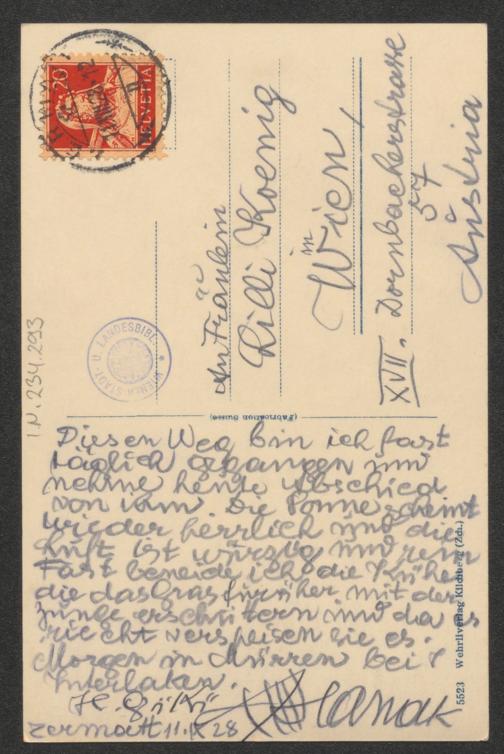 HELVETIA
20
An Fräulein
Lilli Koenig
in
Wien,
XVII. Dornbacherstrasse
57
Austria
WIENER STADT- U. LANDESBIBL.
I.N. 234.293
(Fabrication Suisse)
Diesen Weg bin ich fast
täglich gegangen und
nehme heute Abschied
von ihm. Die Sonne scheint
wieder herrlich und die
Luft ist würzig und rein
Fast beneide ich die Kühe
die das Gras früher mit der
Zunge erschüttern und da es
riecht verspeisen sie es.
Morgen in Mürren bei
Interlaken.
Hanak
Zermatt 11. 28
5523 Wehrliverlag Kilchberg (Zch.)